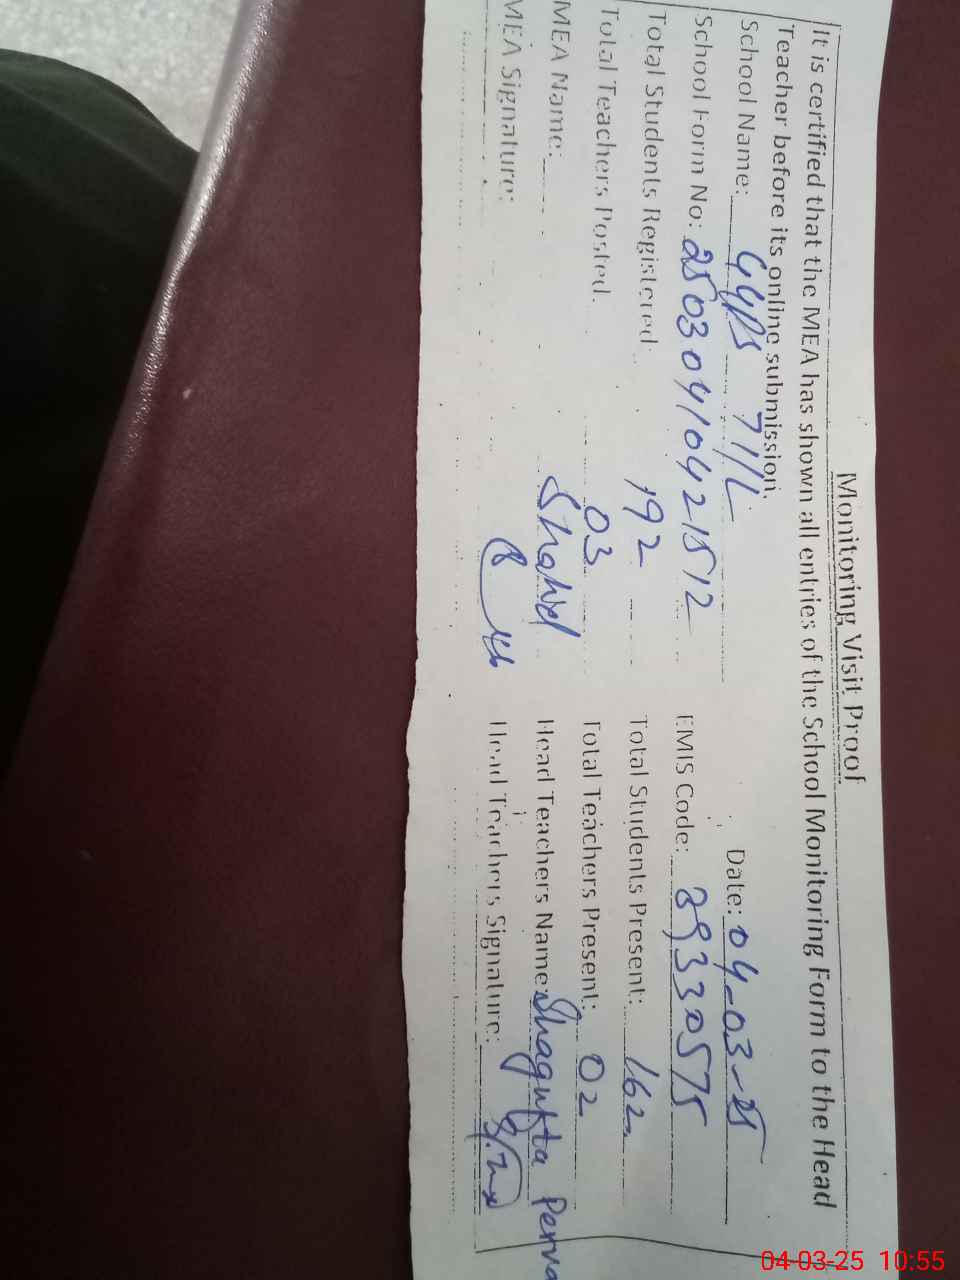 Monitoring Visit Proof
It is certified that the MEA has shown all entries of the School Monitoring Form to the Head
Teacher before its online submission.
School Name: GGPS 71/L Date: 04-03-25
School Form No: 25030410421512 EMIS Code: 39330575
Total Students Registered: 192 Total Students Present: 162
Total Teachers Posted: 03 Total Teachers Present: 02
MEA Name: Shahid Head Teachers Name: Shagufta
MEA Signature: Head Teachers Signature:
04-03-25 10:55